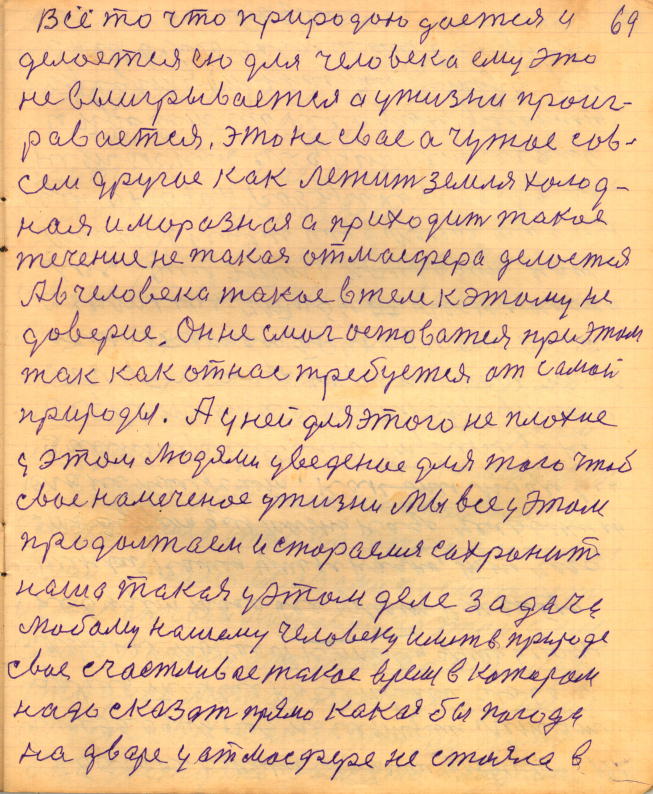 Всё то что природою дается и 69
делоется ею для человека ему это
не выигрывается а ужизни проиг-
равается. Это не свое а чужое сов-
сем другое как лежит земля холод-
ная и моразная а приходит такое
течение не такая отмасфера делоется
А в человека такое в теле к этому не
доверие. Он не смог остоватся при этом
так как от нас требуется от самой
природы. А у ней для этого не плохие
у этом людями уведеное для того чтоб
свое намеченое ужизни Мы все у этом
продолжаем и стораемся сохранит
наша такая у этом деле задача
Любому нашему человеку имет в природе
свое счастливое такое время в котором
надо сказат прямо какая бы погода
на дваре у атмосфере не стояла в